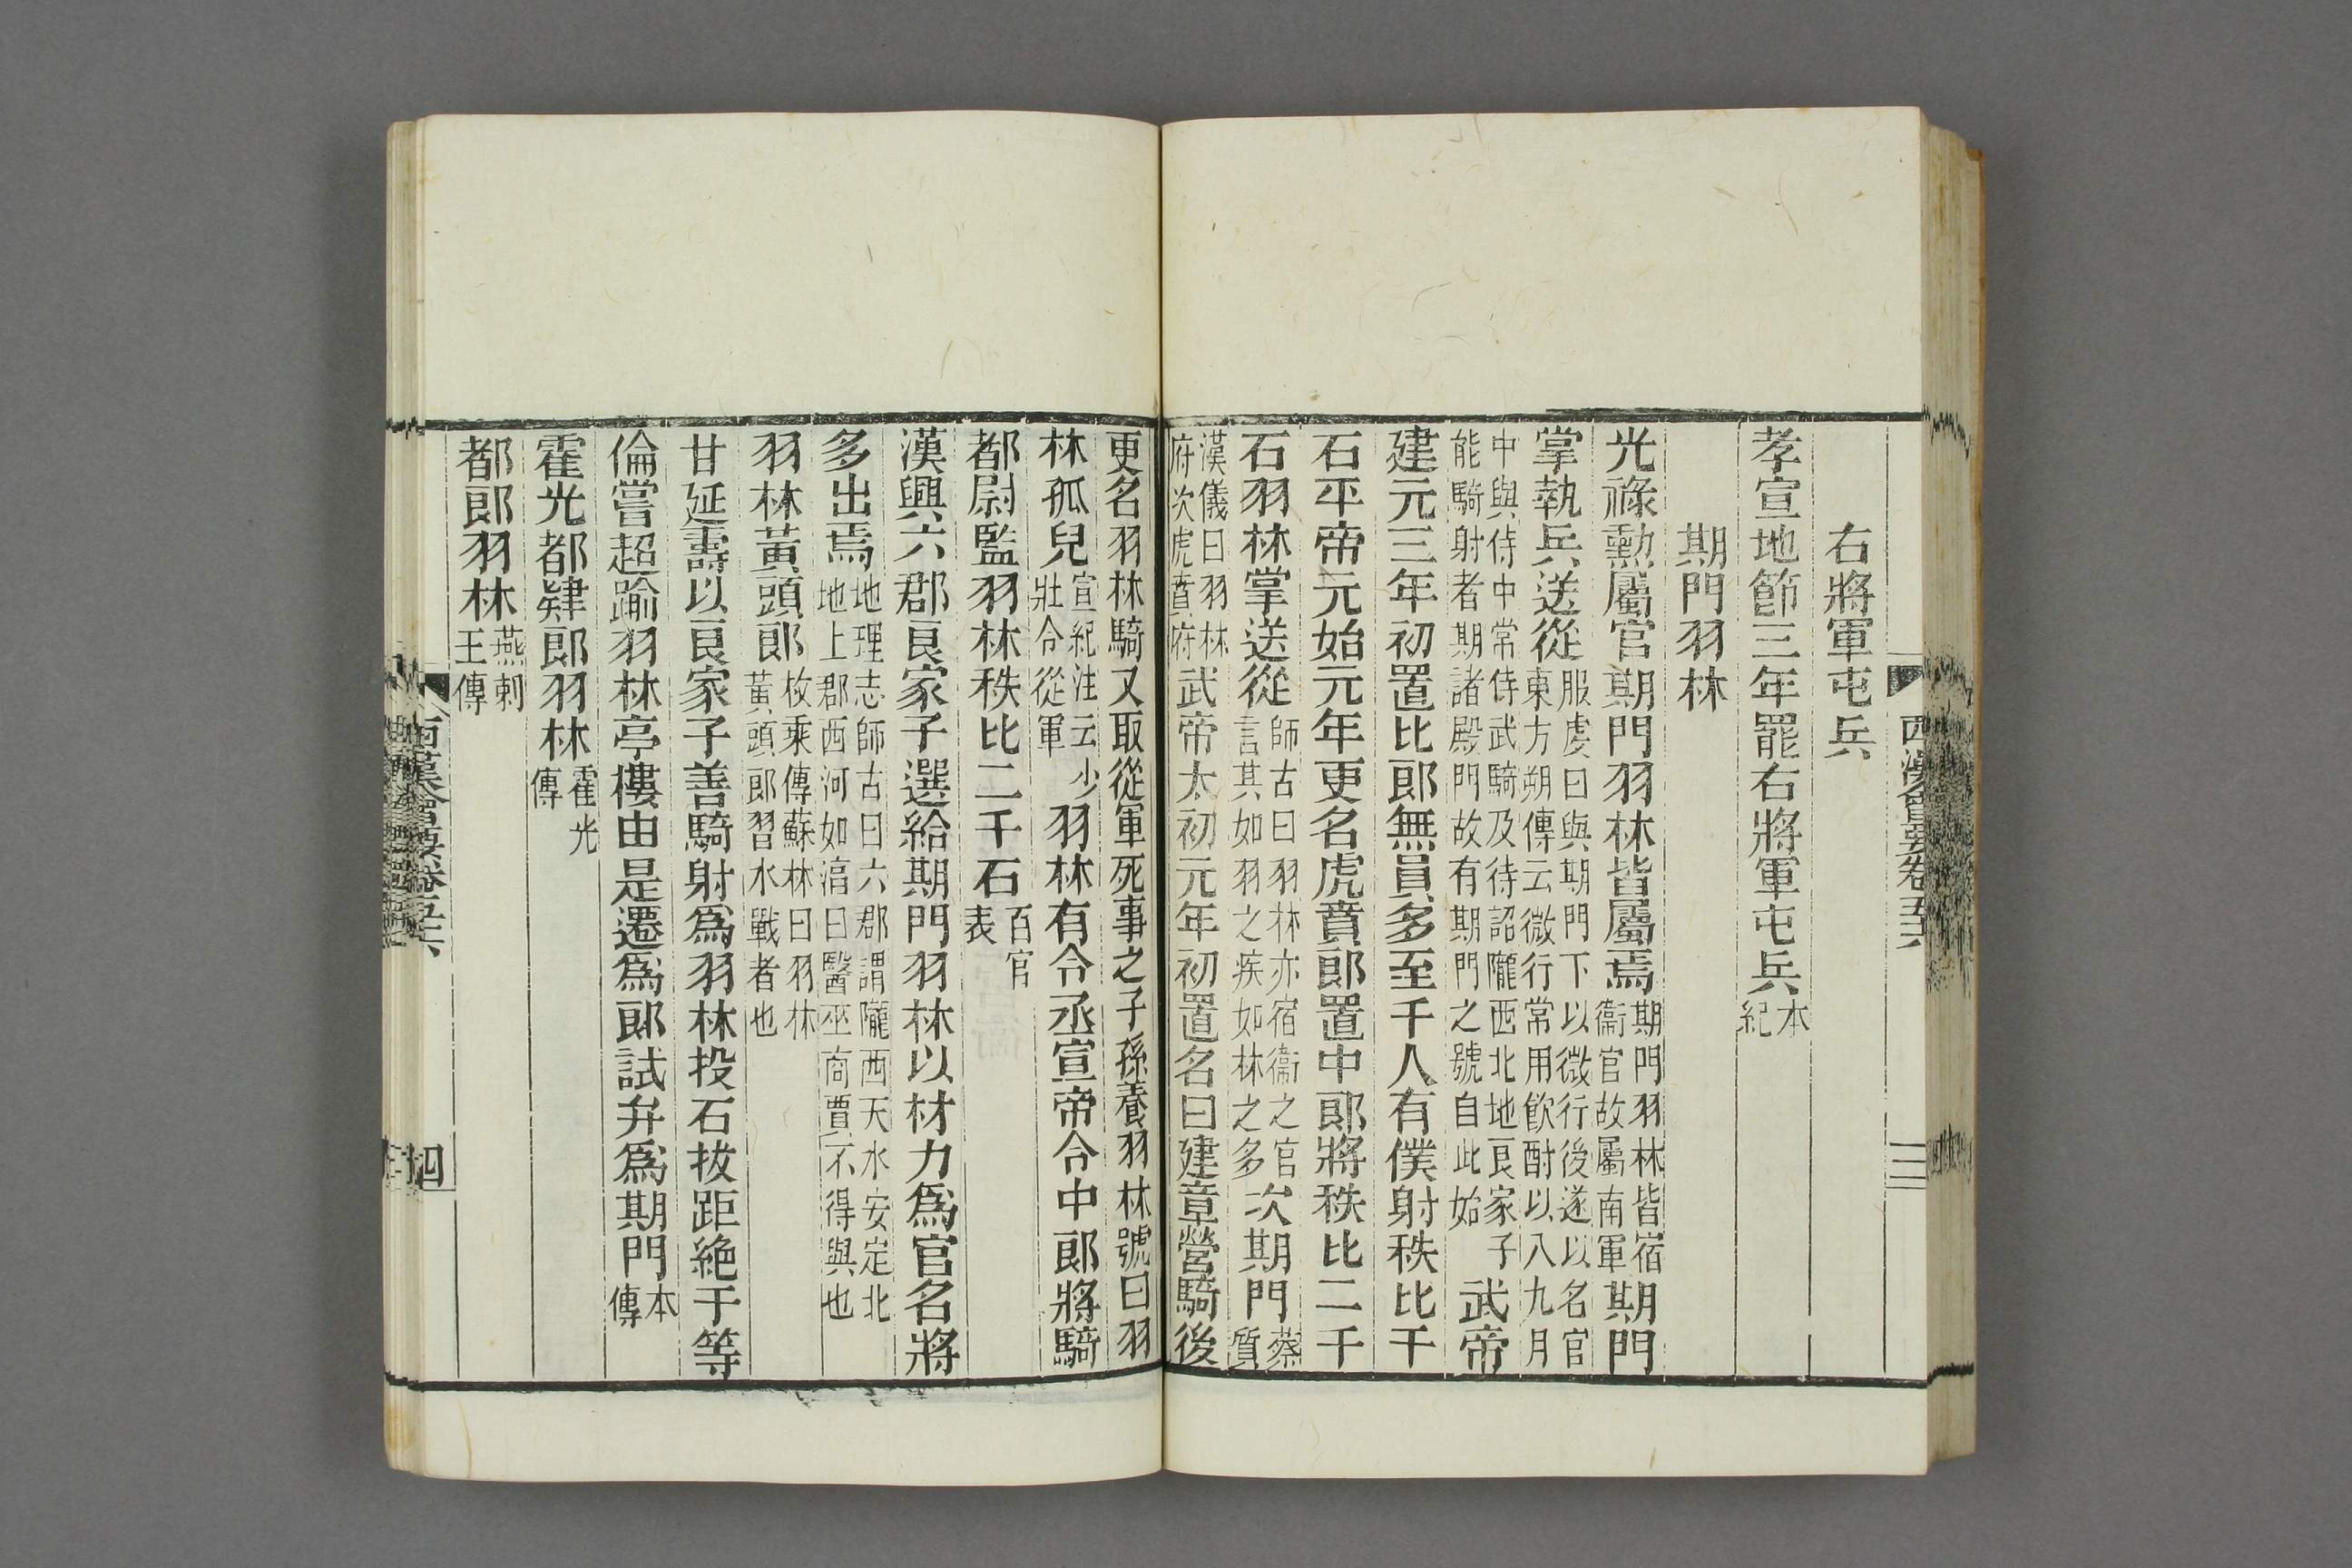 西漢會要卷五六
三
右將軍屯兵
孝宣地節三年罷右將軍屯兵本紀
期門羽林
光祿勳屬官期門羽林皆屬焉期門羽林皆宿衞官故屬南軍期門
掌執兵送從服虔曰與期門下以微行後遂以名官東方朔傳云微行常用飮酎以八九月
中與侍中常侍武騎及待詔隴西北地良家子能騎射者期諸殿門故有期門之號自此始武帝
建元三年初置比郎無員多至千人有僕射秩比千
石平帝元始元年更名虎賁郎置中郎將秩比二千
石羽林掌送從師古曰羽林亦宿衞之官言其如羽之疾如林之多次期門蔡質
漢儀曰羽林府次虎賁府武帝太初元年初置名曰建章營騎後
更名羽林騎又取從軍死事之子孫養羽林號曰羽
林孤兒宣紀注云少壯令從軍羽林有令丞宣帝令中郎將騎
都尉監羽林秩比二千石百官表
漢興六郡良家子選給期門羽林以材力爲官名將
多出焉地理志師古曰六郡謂隴西天水安定北地上郡西河如淳曰醫巫商賈不得與也
羽林黃頭郎枚乘傳蘇林曰羽林黃頭郎習水戰者也
甘延壽以良家子善騎射爲羽林投石拔距絶于等
倫嘗超踰羽林亭樓由是遷爲郎試弁爲期門本傳
霍光都肄郎羽林霍光傳
都郎羽林燕剌王傳
西漢會要卷五六
四